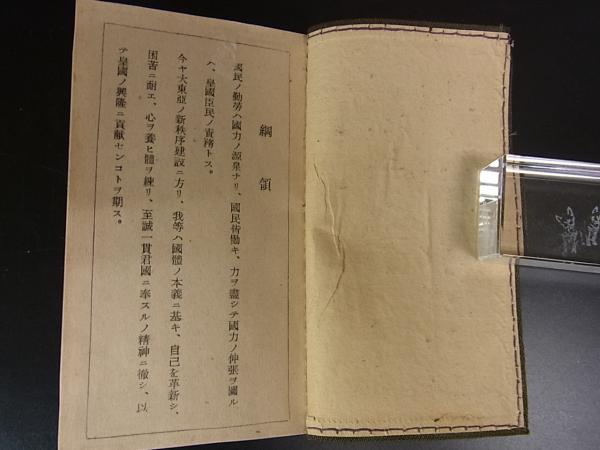 綱領
國民ノ勤勞ハ國力ノ源泉ナリ、國民皆働キ、力ヲ盡シテ國力ノ伸張ヲ圖ル
ハ、皇國臣民ノ責務トス。
今ヤ大東亞ノ新秩序建設ニ方リ、我等ハ國體ノ本義ニ基キ、自己を革新シ、
困苦ニ耐エ、心ヲ養ヒ體ヲ練リ、至誠一貫君國ニ奉ズルノ精神ニ徹シ、以
テ皇國ノ興隆ニ貢献センコトヲ期ス。